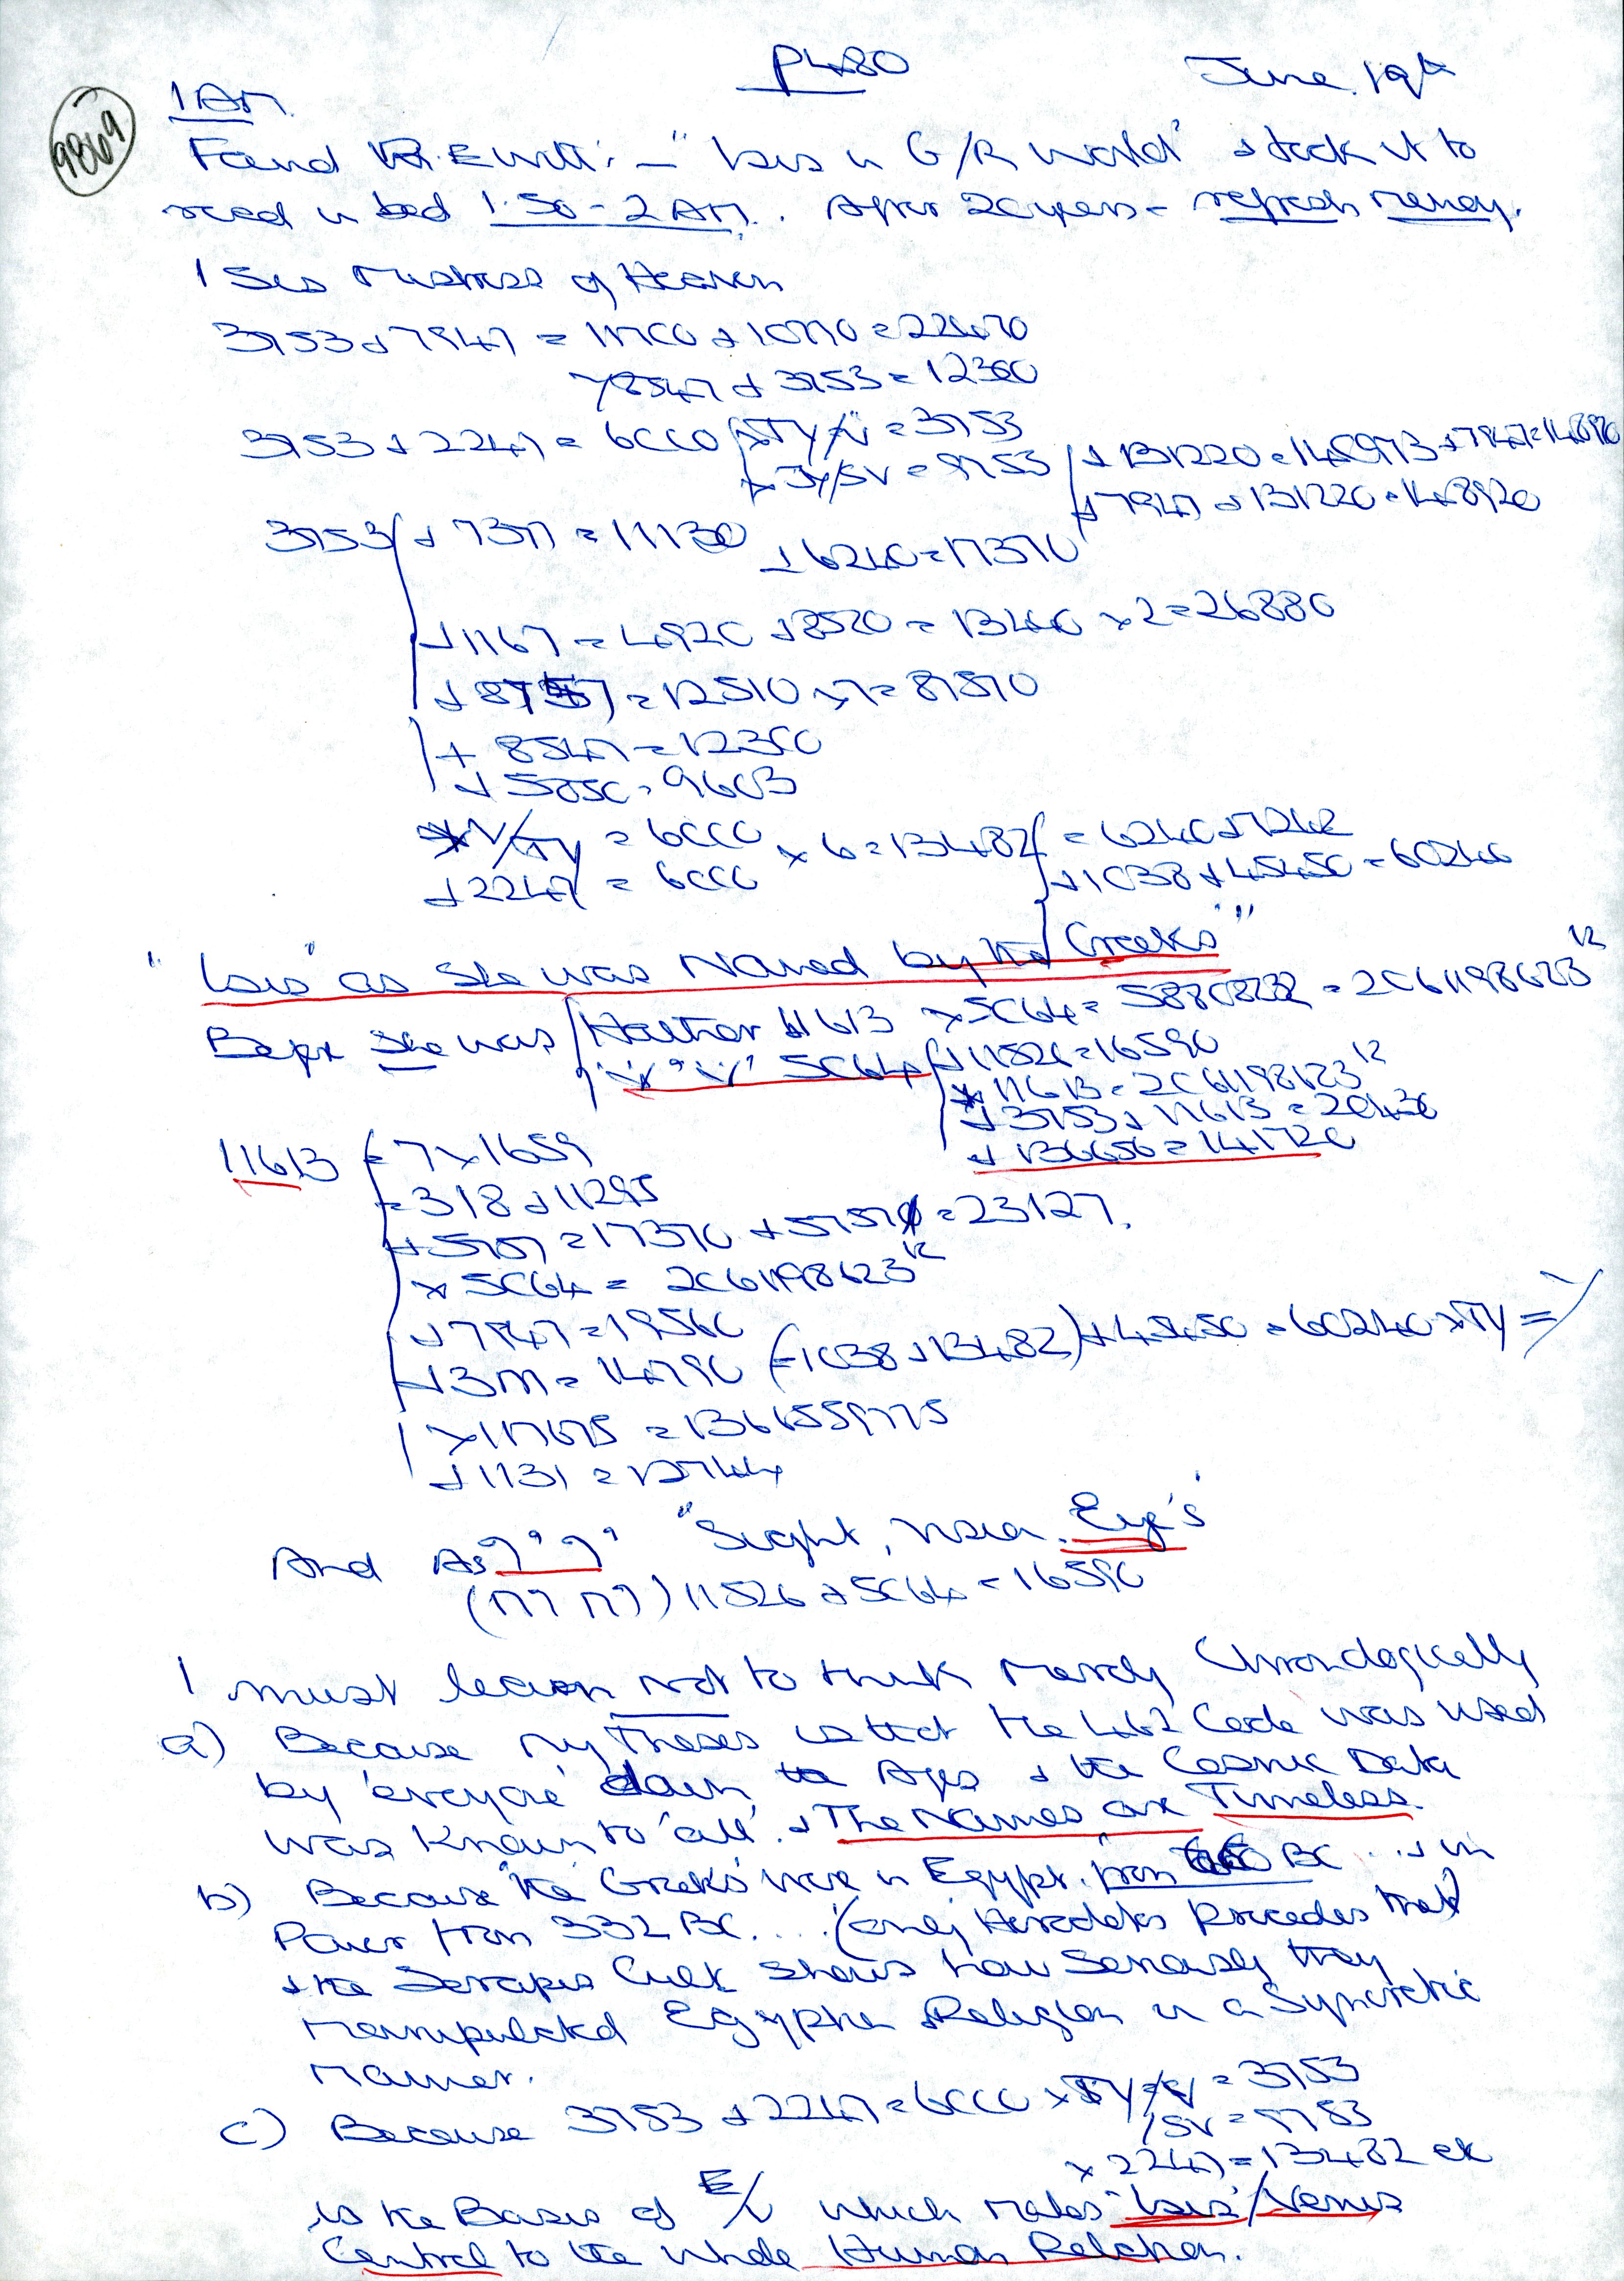 P480
June 19th
9869
1 AM
Found R.E Witt: - "Isis in G/R World" & took it to
read in bed 1.50 - 2 AM. After 20 years - refresh memory.
Isis Mistress of Heaven
3753 + 7947 = 11700 + 10770 = 22470
8547 + 3753 = 12300
3753 + 2247 = 6000 x TY/V = 3753
x JY/SV = 9753
+ 131220 = 140973 + 7947 = 148920
+ 7947 + 131220 = 148920
3753 + 7377 = 11130 + 6240 = 17370
+ 1167 = 4920 + 8520 = 13440 x 2 = 26880
+ 8757 = 12510 x 7 = 87570
+ 8547 = 12300
+ 5850 = 9603
x V/TY = 6000
+ 2247 = 6000 x 6 = 13482 = 6240 + 7242
+ 1038 + 45450 = 60240
"Isis" as she was Named by the Greeks"
Before she was Hathor 11613 x 5064 = 58808232 = 2061198623 12
5064 + 11526 = 16590
x 11613 = 2061198623 12
+ 3753 + 11613 = 20430
+ 136656 = 141720
11613 = 7 x 1659
= 318 + 11295
+ 5757 = 17370 + 5757 = 23127.
x 5064 = 2061198623 12
+ 7947 = 19560
+ 3177 = 14790 (-1038 + 13482) + 45450 = 60240 x TY =
x 117675 = 1366559775
+ 1131 = 12744
And As "Sight, Vision, Eye's'
11526 + 5064 = 16590
I must learn not to think merely Chronologically
a) Because My Theses is that the 462 Code was used
by 'everyone' down the Ages & the Cosmic Data
was known to 'all'. & The Names are Timeless.
b) Because 'the Greeks' were in Egypt from BC .. & in
Power from 332 BC.... (only Herodotos Precedes that)
& the Serapis Cult shows how seriously they
Manipulated Egyptian Religion in a Syncretic
Manner.
c) Because 3753 + 2247 = 6000 x TY/V = 3753
/SV = 9753
x 2247 = 13482 etc
is the Basis of E/V which makes "Isis"/Venus
Central to the whole Human Relation.